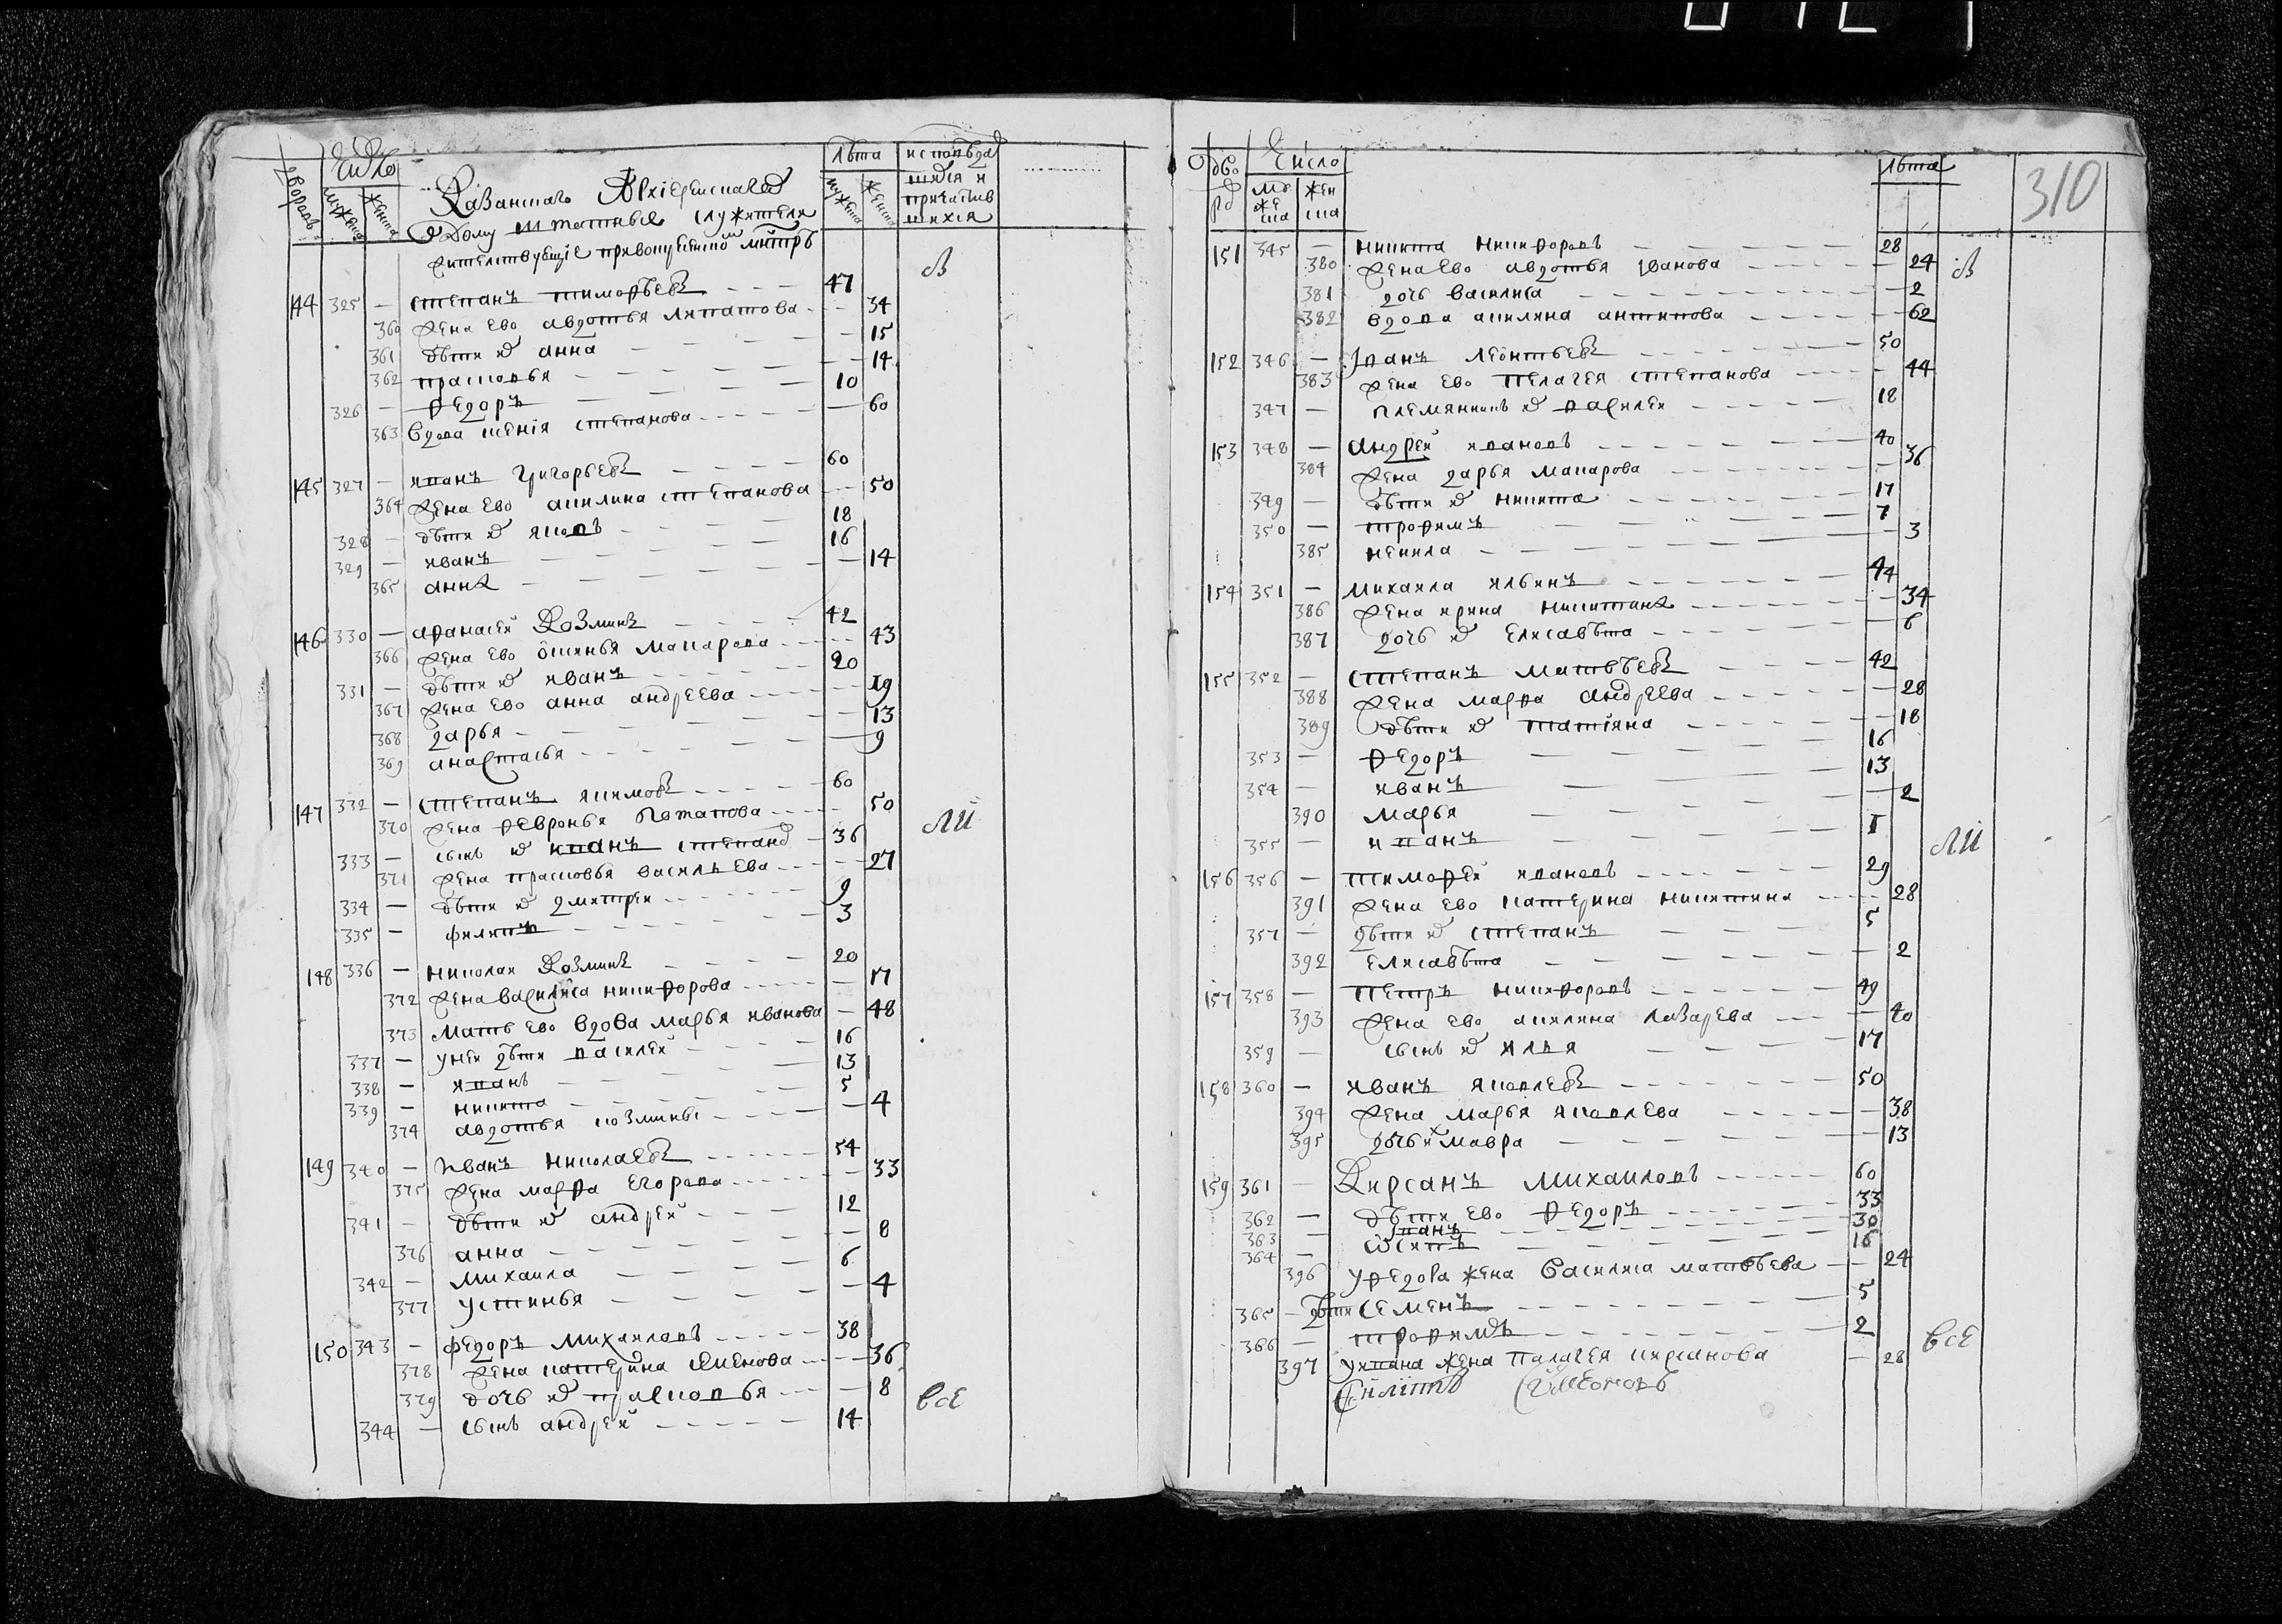 дворовъ Число лѣта исповѣда
мужеска женска мужеска женска шихся и
Казанскаго Архиерейскаго причастив
дому штатные служители шихся
жителствующие при
144 325 — степанъ тимофѣевъ 47
360 жена ево авдотья ипатова 34
361 дѣти их анна 15
362 прасковья 14
326 — федоръ 10
363 вдова ксенiя степанова 60
145 327 — иванъ григорьевъ 60
364 жена ево акилина степанова 50
328 — дѣти их яковъ 18
329 — иванъ 16
365 анна 14
146 330 — афанасей козминъ 42
366 жена ево макарова 43
331 — дѣти их иванъ 20
367 жена ево анна андреева 19
368 дарья 13
369 анастасья 9
147 332 — степанъ якимовъ 60
370 жена февронья потапова 50
333 — сынъ их иванъ степанов 36
371 жена прасковья васильева 27
334 — дѣти их дмитреи 9
335 — филипъ 3
148 336 — николаи козминъ 20
372 жена василиса никифорова 17
373 мать ево вдова марья иванова 48
337 — у неи дѣти василеи 16
338 — иванъ 13
339 — никита 5
374 авдотья козмины 4
149 340 — иванъ николаевъ 54
375 жена марфа егорова 33
341 — дѣти их андреи 12
376 анна 8
342 — михаила 6
377 устинья 4
150 343 — федоръ михаиловъ 38
378 жена катерина 36
379 дочь их прасковья 8
344 — сынъ андреи 14
В
ЛИ
все
дво Число лѣта 310
ро му же ска жен ска
151 345 — никита никифоровъ 28
380 жена ево авдотья иванова 24
381 дочь василиса 2
382 вдова акилина антипова 62
152 346 — иванъ леонтьевъ 50
383 жена ево пелагея степанова 44
347 — племянникъ их василеи 18
153 348 — андреи ивановъ 40
384 жена дарья макарова 36
349 — дѣти их никита 17
350 — трофимъ 7
385 ненила 3
154 351 — михаила ильинъ 44
386 жена ирина никитина 34
387 дочь их елисавѣта 6
155 352 — степанъ матвѣевъ 42
388 жена марфа андреева 28
389 дѣти их татiяна 18
353 — федоръ 16
354 — иванъ 13
390 марья 2
355 — иванъ 1
156 356 — тимофеи ивановъ 29
391 жена ево катерина никитина 28
357 — дѣти их степанъ 5
392 елисавѣта 2
157 358 — петръ никифоровъ 49
393 жена ево акилина лазарева 40
359 — сынъ их илья 17
158 360 — иванъ яковлевъ 50
394 жена марья яковлева 38
395 дочь их мавра 13
159 361 — Кирсанъ михаиловъ 60
362 — дѣти ево федоръ 33
363 — иванъ 30
364 — осипъ 16
396 у федора жена василиса матвѣева 24
365 — дѣти семенъ 5
366 — трофимъ 2
397 у ивана жена палагея кирсанова 28
Филипъ Симеоновъ
В
ЛИ
все